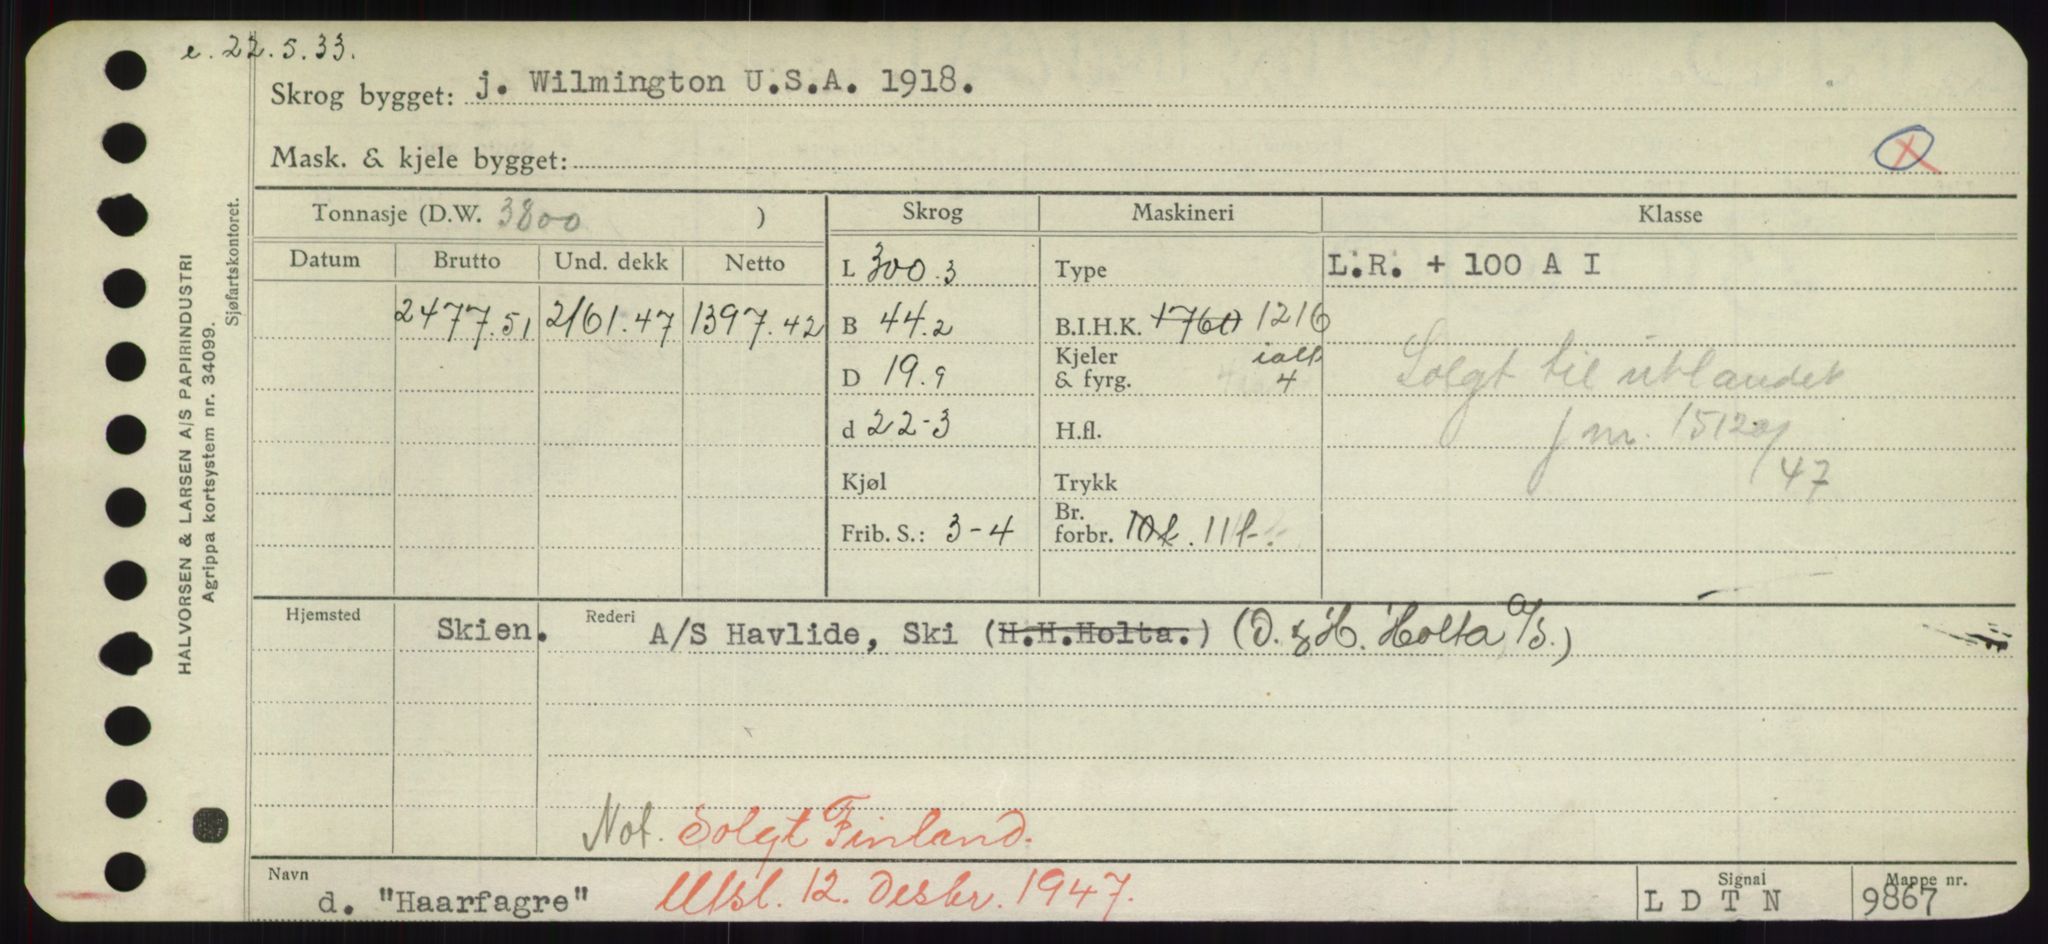 e. 22.5.33.
Skrog bygget: j. Wilmington U.S.A. 1918.
Mask. & kjele bygget:
X
HALVORSEN & LARSEN A/S PAPIRINDUSTRI
Agrippa kortsystem nr. 34099.
Sjøfartskontoret.
Tonnasje (D.W. 3800 )
Skrog Maskineri Klasse
Datum Brutto Und. dekk Netto
L 300.3 Type L.R. + 100 A I
2477.51 2161.47 1397.42 B 44.2 B.I.H.K. 1760 1216
Kjeler ialt
D 19.9 & fyrg. 4 Solgt til utlandet
d 22-3 H.fl. j nr. 15120/
47
Kjøl Trykk
Br.
Frib. S.: 3-4 forbr. 10t. 11t.
Hjemsted Skien. Rederi A/S Havlide, Ski (H.H.Holta.) (D. & H. Holta A/S.)
Not. Solgt Finland.
Navn d. "Haarfagre" Utsl. 12. Desbr. 1947.
Signal L D T N Mappe nr. 9867